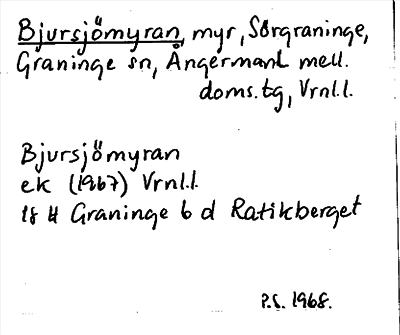 Bjursjömyran, myr, Sörgraninge,
Graninge sn, Ångermanl. mell.
doms.tg, Vrnl.l.
Bjursjömyran
ek (1967) Vrnl.l.
18 H Graninge 6 d Ratikberget
P.S. 1968.